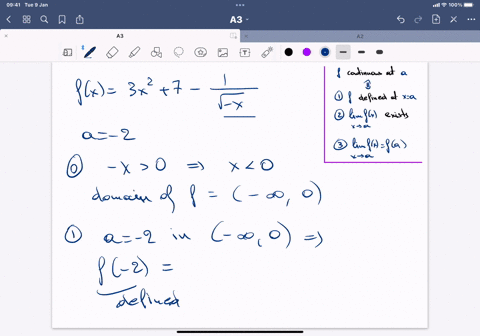 09:41 Tue 9 Jan
A3
A3
A1
f(x) = 3x² + 7 - 1/√-x
a = -2
⓪ -x > 0 ⇒ x < 0
domain of f = (-∞, 0)
① a = -2 in (-∞, 0) ⇒
f(-2) =
defined
f continuous at a
⇕
① f defined at x=a
② lim f(x) exists
x→a
③ lim f(x) = f(a)
x→a